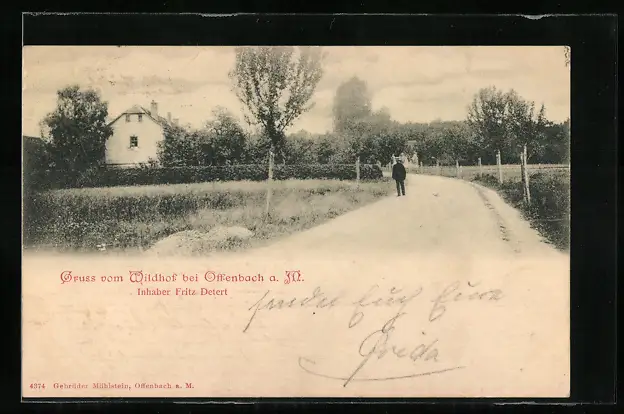 Gruss vom Wildhof bei Offenbach a. M.
Inhaber Fritz Detert
sendet Euch Eure
Frida
4374 Gebrüder Mühlstein, Offenbach a. M.